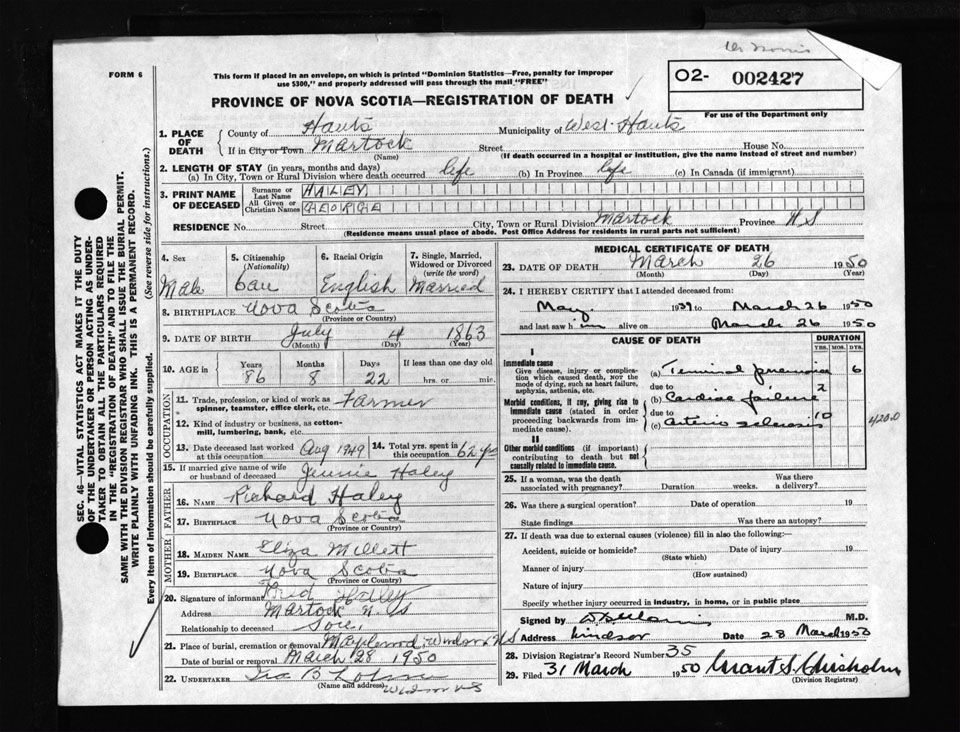 Dr Morris
FORM 6
This form if placed in an envelope, on which is printed "Dominion Statistics—Free, penalty for improper
use $300," and properly addressed will pass through the mail "FREE"
02- 002427
For use of the Department only
PROVINCE OF NOVA SCOTIA—REGISTRATION OF DEATH
1. PLACE OF DEATH
County of Hants Municipality of West Hants
If in City or Town Martock Street House No.
(Name) (If death occurred in a hospital or institution, give the name instead of street and number)
2. LENGTH OF STAY (in years, months and days)
(a) In City, Town or Rural Division where death occurred life (b) In Province life (c) In Canada (if immigrant)
3. PRINT NAME OF DECEASED
Surname or Last Name HALEY
All Given or Christian Names GEORGE
RESIDENCE No. Street City, Town or Rural Division Martock Province N S
(Residence means usual place of abode. Post Office Address for residents in rural parts not sufficient)
4. Sex 5. Citizenship (Nationality) 6. Racial Origin 7. Single, Married, Widowed or Divorced (write the word)
Male Can English Married
8. BIRTHPLACE Nova Scotia
(Province or Country)
9. DATE OF BIRTH July 4 1863
(Month) (Day) (Year)
10. AGE in Years Months Days If less than one day old
86 8 22 hrs. or min.
OCCUPATION
11. Trade, profession, or kind of work as spinner, teamster, office clerk, etc. Farmer
12. Kind of industry or business, as cotton-mill, lumbering, bank, etc.
13. Date deceased last worked at this occupation Aug 1949 14. Total yrs. spent in this occupation 62 yrs
15. If married give name of wife or husband of deceased Jennie Haley
FATHER
16. NAME Richard Haley
17. BIRTHPLACE Nova Scotia
(Province or Country)
MOTHER
18. MAIDEN NAME Eliza Millett
19. BIRTHPLACE Nova Scotia
(Province or Country)
20. Signature of informant Fred Haley
Address Martock N. S
Relationship to deceased Son.
21. Place of burial, cremation or removal Maplewood, Windsor N S
Date of burial or removal March 28 1950
22. UNDERTAKER Ira B
(Name and address) Windsor N S
MEDICAL CERTIFICATE OF DEATH
23. DATE OF DEATH March 26 1950
(Month) (Day) (Year)
24. I HEREBY CERTIFY that I attended deceased from:
May 1939 to March 26 1950
and last saw him alive on March 26 1950
CAUSE OF DEATH DURATION
YRS. MOS. DYS.
I
Immediate cause
Give disease, injury or complication which caused death, not the mode of dying, such as heart failure, asphyxia, asthenia, etc.
(a) Terminal pneumonia 6
due to
Morbid conditions, if any, giving rise to immediate cause (stated in order proceeding backwards from immediate cause).
(b) Cardiac failure 2
due to
(c) Arterio sclerosis 10
4200
II
Other morbid conditions (if important) contributing to death but not causally related to immediate cause.
25. If a woman, was the death associated with pregnancy? Duration weeks. Was there a delivery?
26. Was there a surgical operation? Date of operation 19
State findings Was there an autopsy?
27. If death was due to external causes (violence) fill in also the following:—
Accident, suicide or homicide? Date of injury 19
(State which)
Manner of injury
(How sustained)
Nature of injury
Specify whether injury occurred in industry, in home, or in public place
Signed by M.D.
Address Windsor Date 28 March 1950
28. Division Registrar's Record Number 35
29. Filed 31 March 1950 Grant S. Chisholm
(Division Registrar)
SEC. 46—VITAL STATISTICS ACT MAKES IT THE DUTY
OF THE UNDERTAKER OR PERSON ACTING AS UNDERTAKER TO OBTAIN ALL THE PARTICULARS REQUIRED
IN THE "REGISTRATION OF DEATH" AND TO FILE THE
SAME WITH THE DIVISION REGISTRAR WHO SHALL ISSUE THE BURIAL PERMIT.
WRITE PLAINLY WITH UNFADING INK. THIS IS A PERMANENT RECORD.
Every item of information should be carefully supplied. (See reverse side for instructions.)